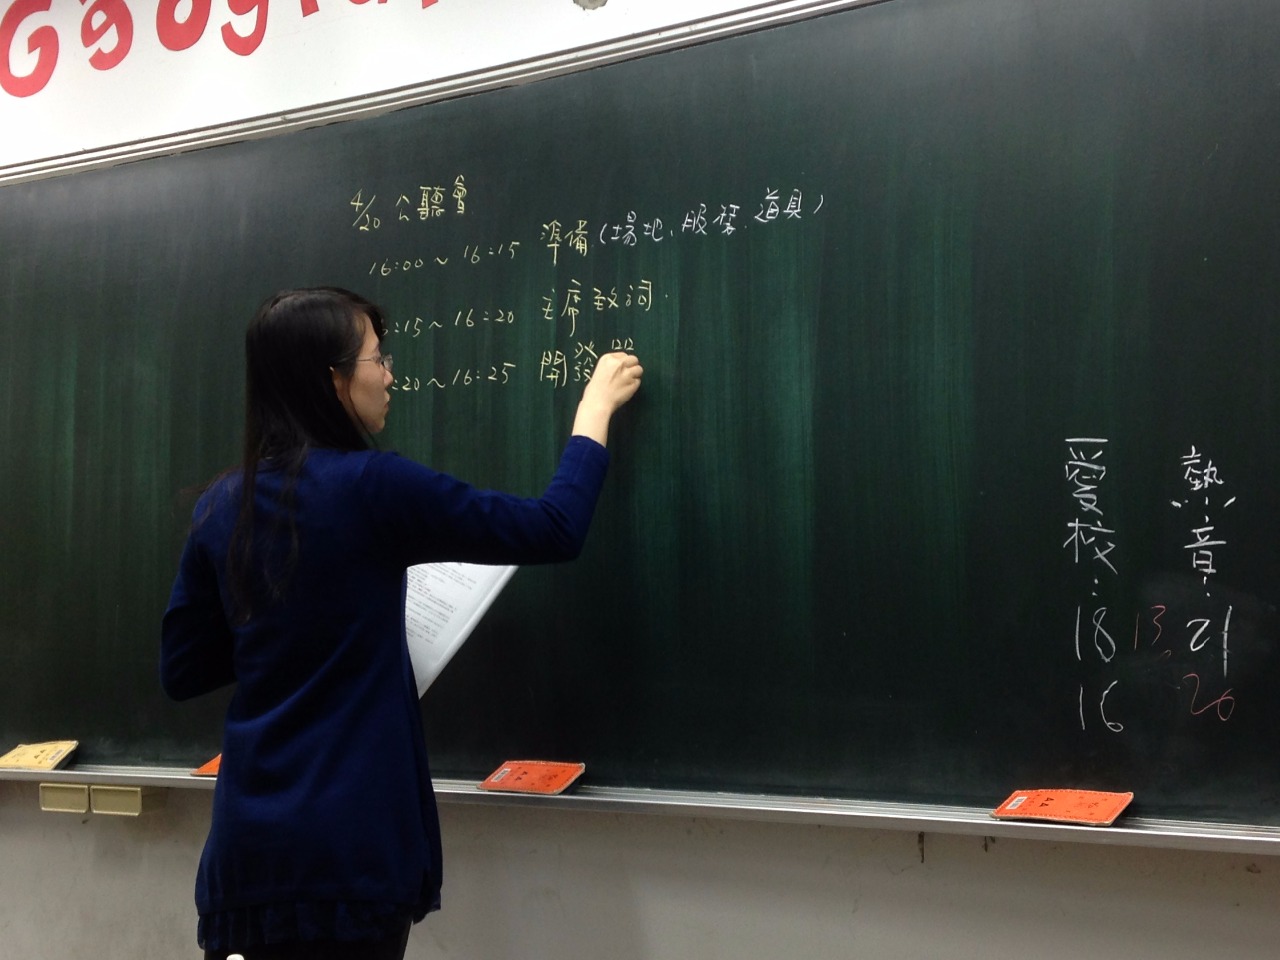 Geograp
4/20 公聽會
16:00～16:15 準備(場地、服裝、道具)
:15～16:20 主席致詞.
:20～16:25 開發
愛校: 18 16
13
熱音: 21 20